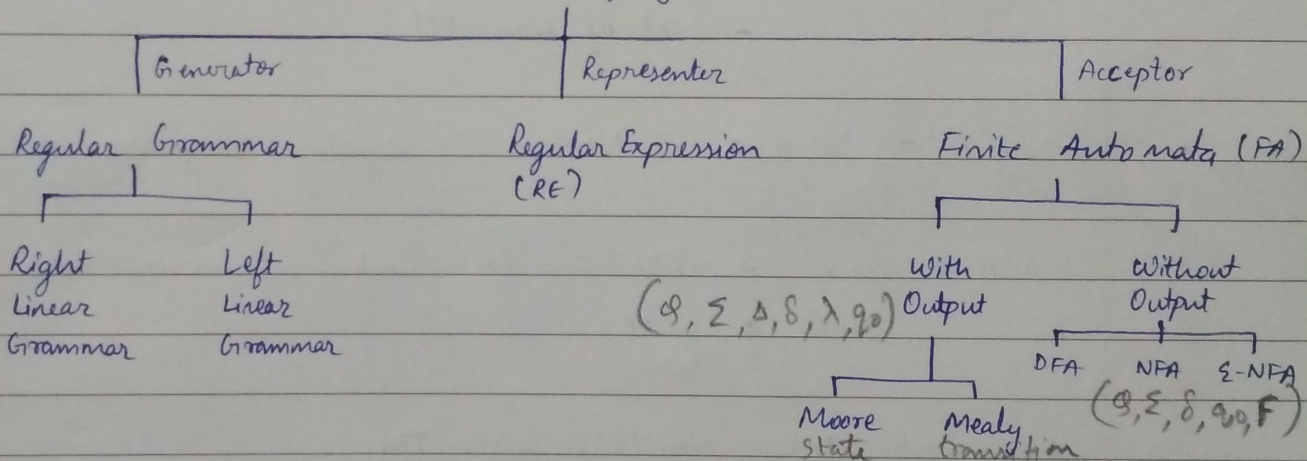 Generator Representer Acceptor
Regular Grammar Regular Expression (RE) Finite Automata (FA)
Right Linear Grammar
Left Linear Grammar
With Output
(Q, Σ, Δ, δ, λ, q0)
Without Output
DFA NFA Σ-NFA
(Q, Σ, δ, q0, F)
Moore state
Mealy transition